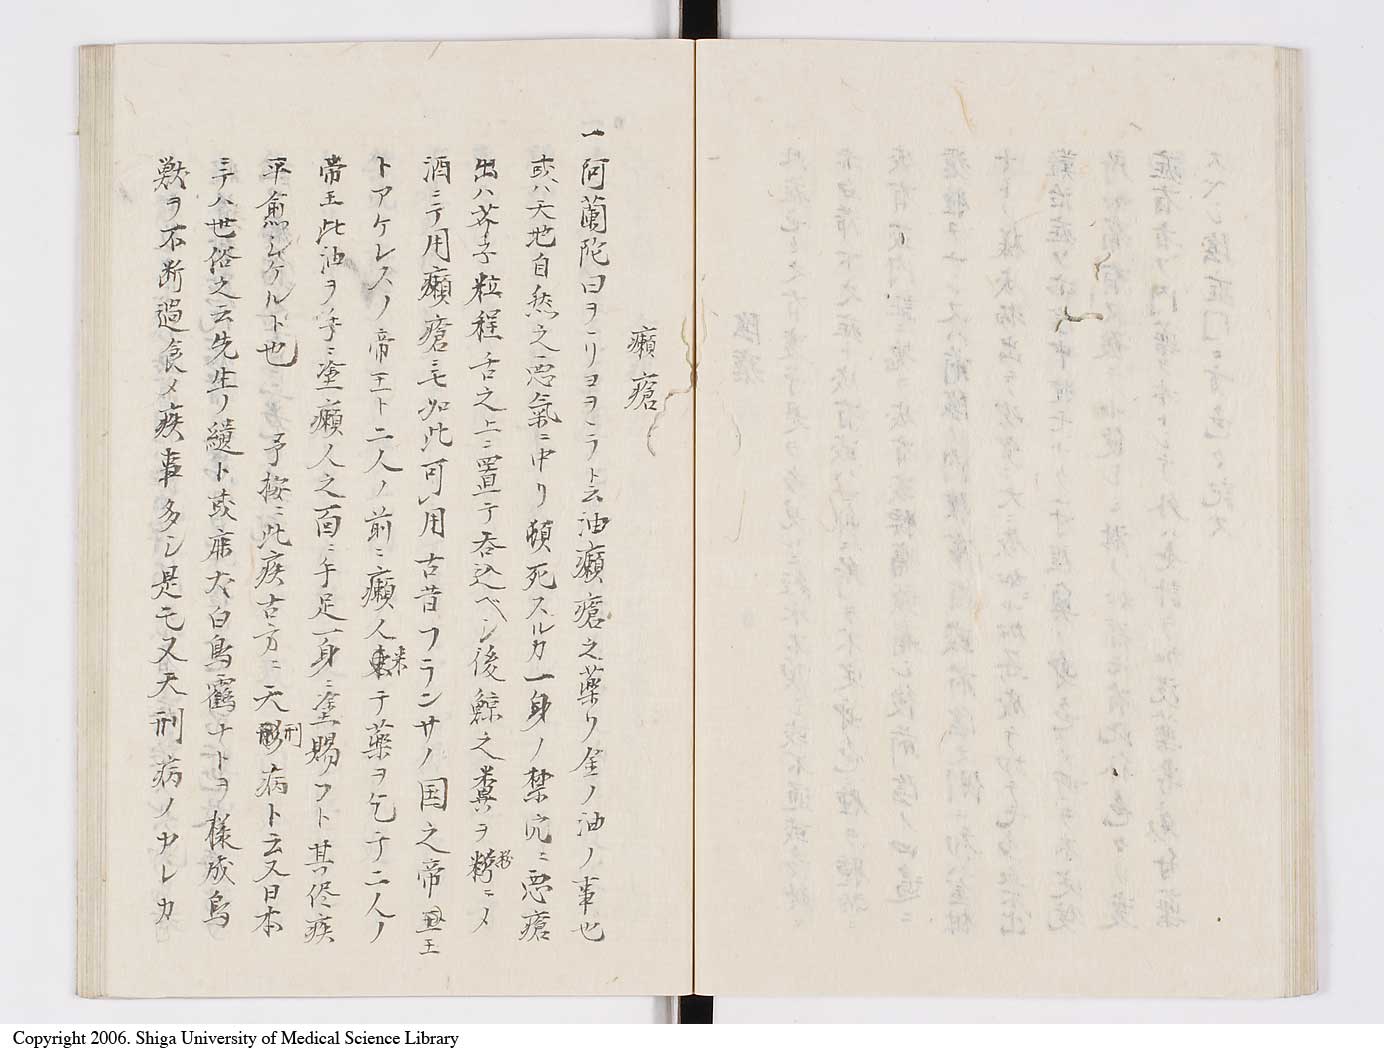 癩瘡
一阿蘭陀曰ヲヽリヨヲヽラト云油癩瘡之薬リ金ノ油ノ事也
或ハ天地自然之悪氣ニ中リ頓死スルカ一身ノ禁穴ニ悪瘡
出ハ芥子粒程舌之上ニ置テ呑込ベシ後鯨之糞ヲ粉ニメ
酒ニテ用癩瘡ニモ如此可用古昔フランサノ国之帝王
トアケレスノ帝王ト二人ノ前ニ癩人来テ薬ヲ乞テ二人ノ
帝王此油ヲ手ニ塗癩人之面ニ手足一身ニ塗賜フト其侭疾
平愈シケルト也 予按ニ此疾古方ニ天刑病ト云又日本
ニテハ世俗之云先生ノ績ト或麻犬白鳥鶴ナトヲ様成鳥
獣ヲ不断過食メ疾事多シ是モ又天刑病ノカレカ
Copyright 2006. Shiga University of Medical Science Library